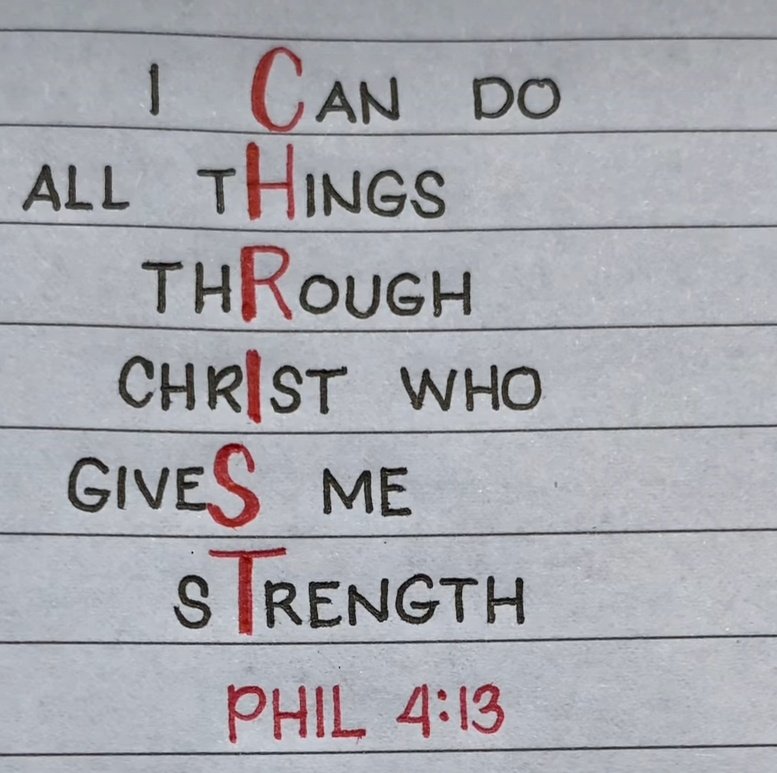 I CAN DO
ALL THINGS
THROUGH
CHRIST WHO
GIVES ME
STRENGTH
PHIL 4:13